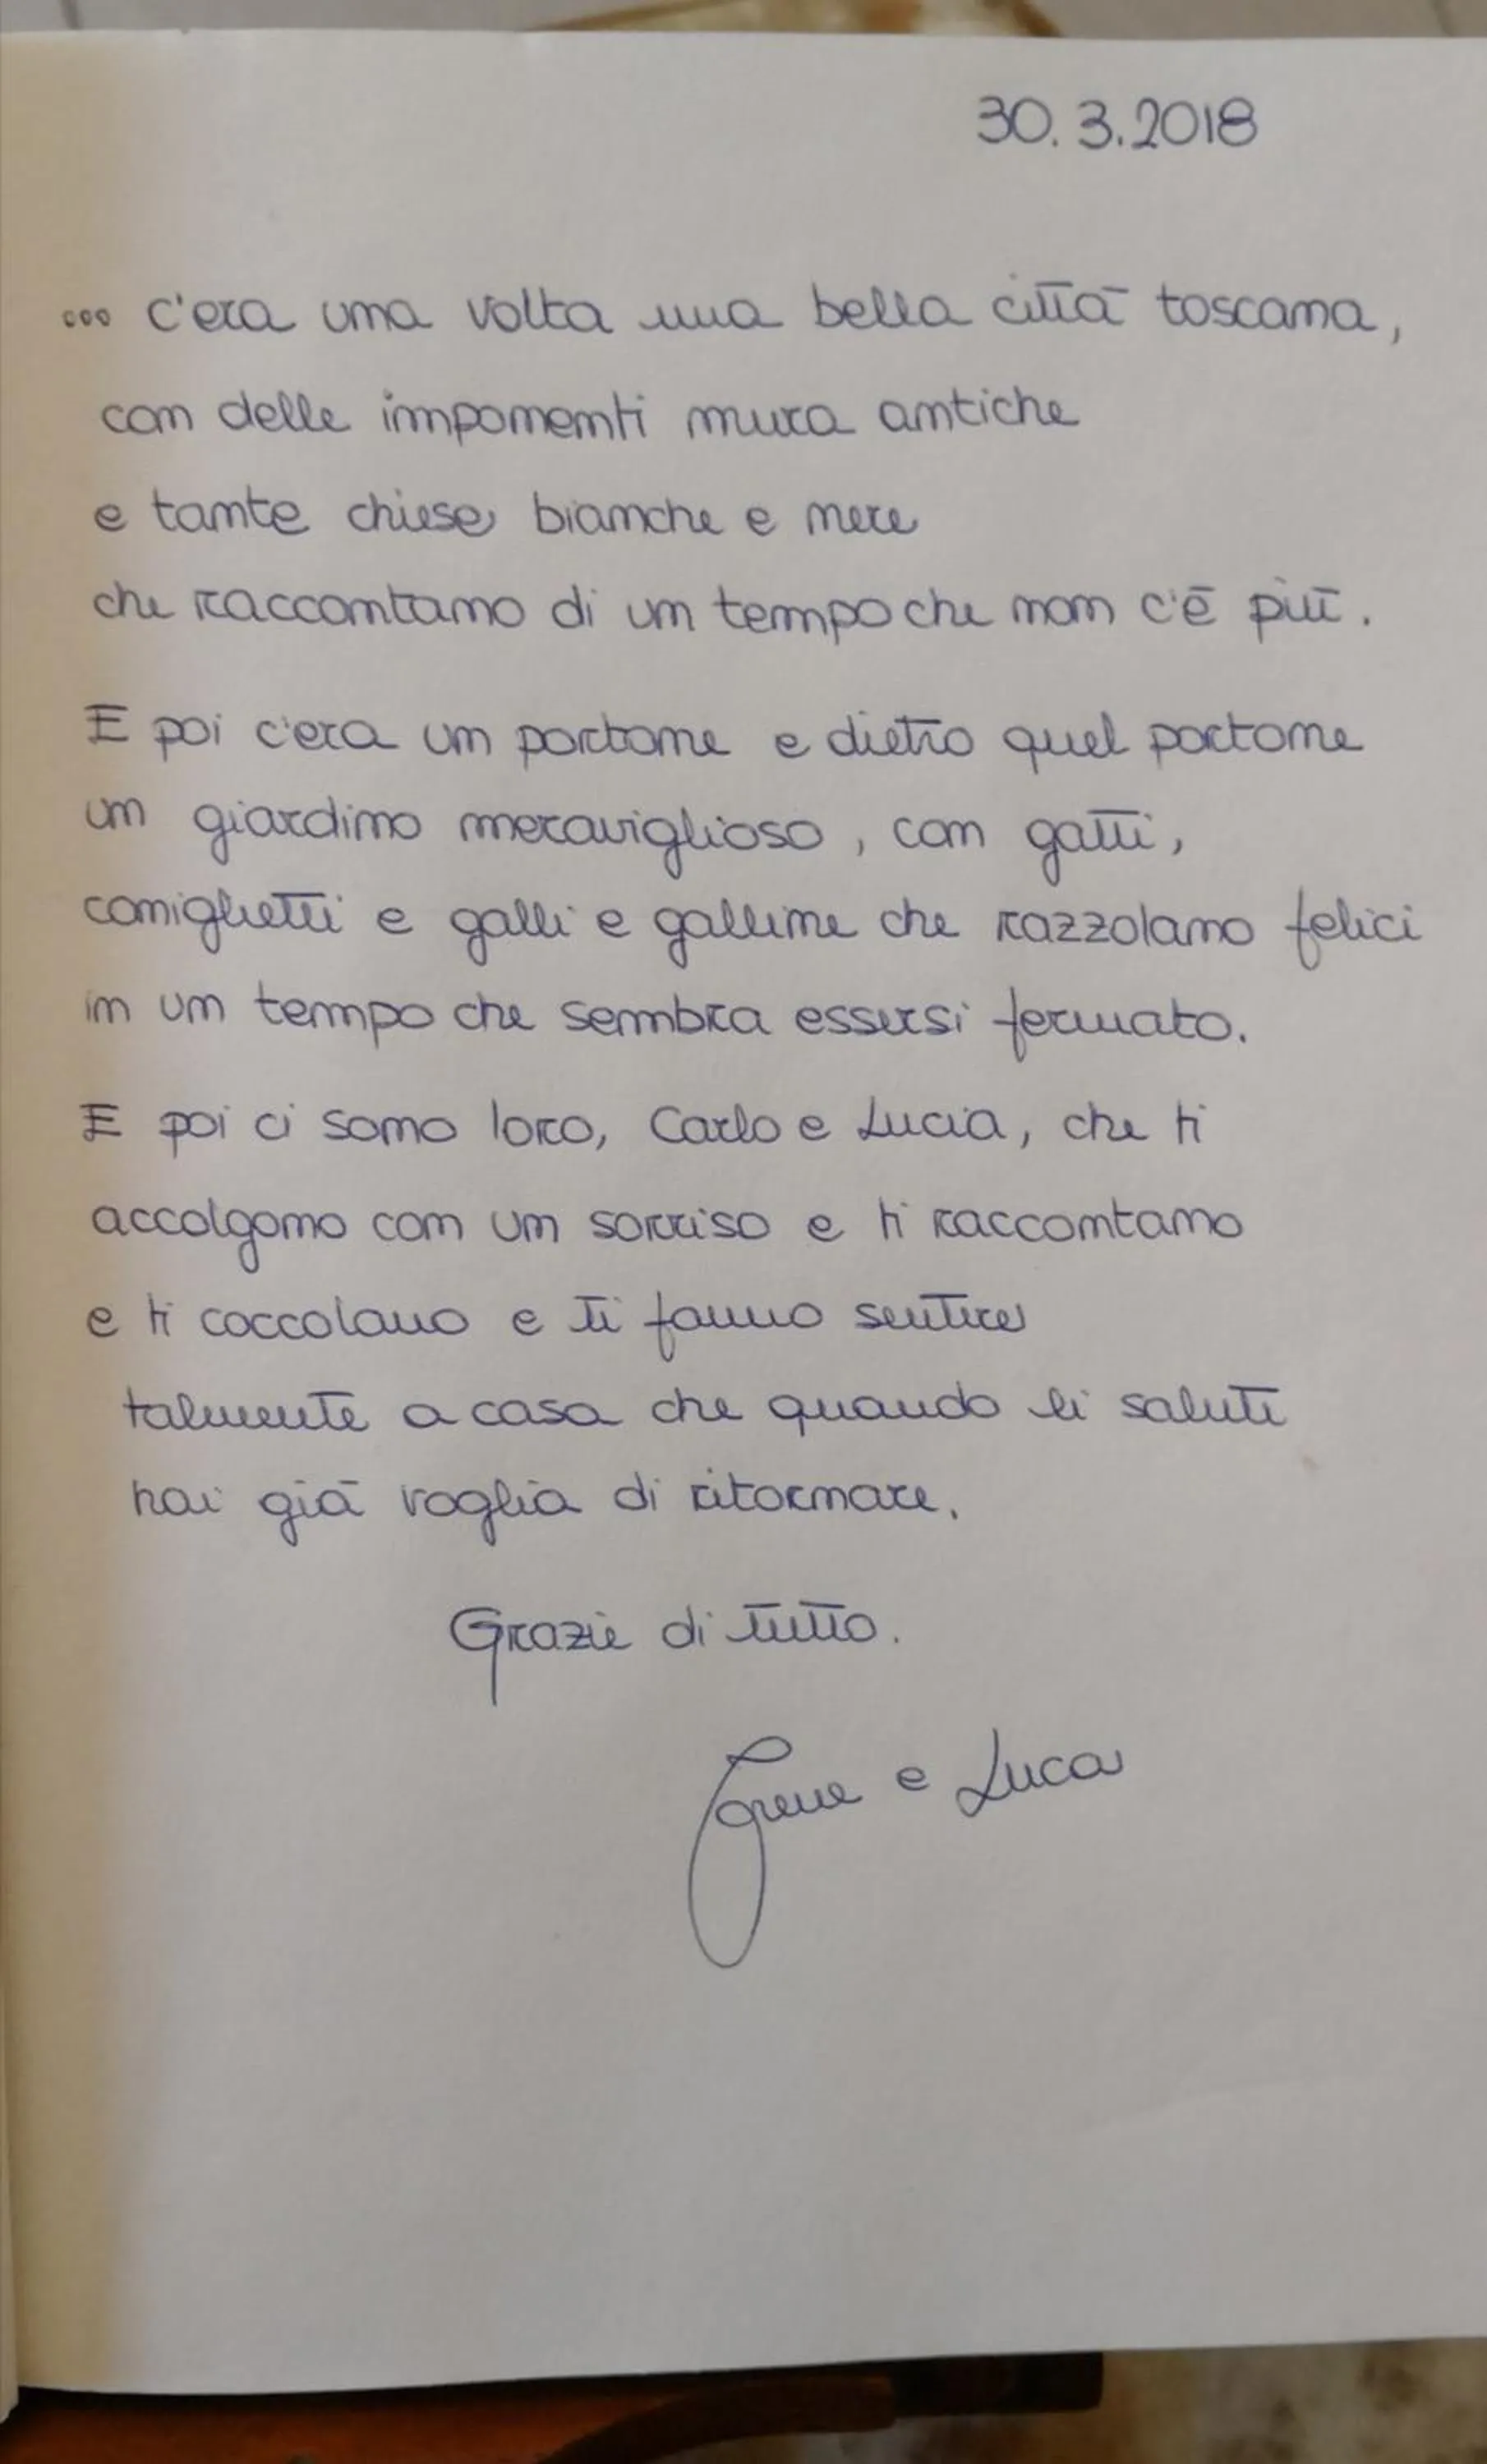 30.3.2018
... c'era una volta una bella città toscana,
con delle imponenti mura antiche
e tante chiese bianche e nere
che raccontano di un tempo che non c'è più.
E poi c'era un portone e dietro quel portone
un giardino meraviglioso, con gatti,
coniglietti e galli e galline che razzolano felici
in un tempo che sembra essersi fermato.
E poi ci sono loro, Carlo e Lucia, che ti
accolgono con un sorriso e ti raccontano
e ti coccolano e ti fanno sentire
talmente a casa che quando li saluti
hai già voglia di ritornare.
Grazie di tutto.
e Luca